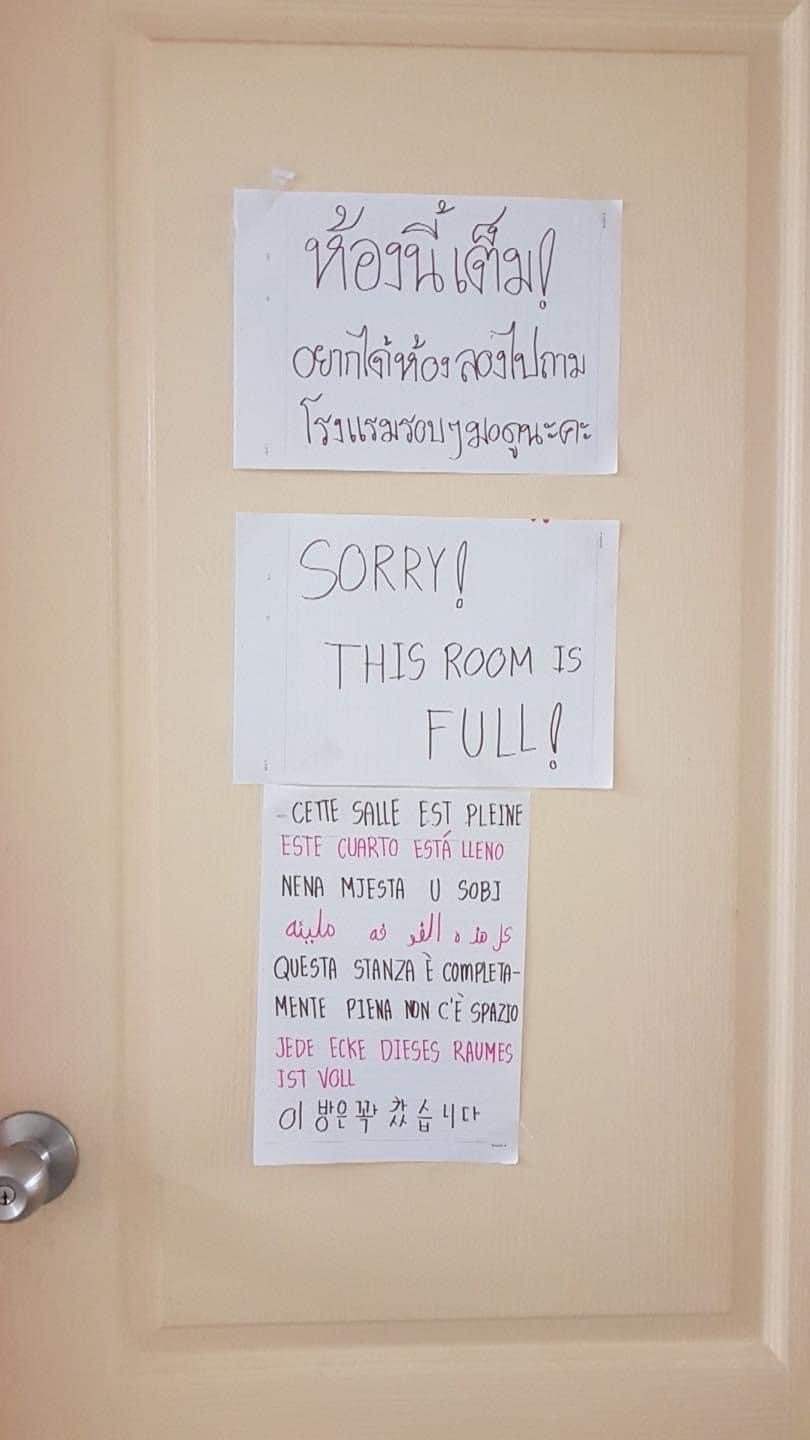 ห้องนี้เต็ม!
อยากได้ห้อง ลองไปถาม
โรงแรมรอบๆ มอดูนะคะ
SORRY!
THIS ROOM IS
FULL!
CETTE SALLE EST PLEINE
ESTE CUARTO ESTÁ LLENO
NENA MJESTA U SOBI
كل هذه الغو فه مليئه
QUESTA STANZA È COMPLETA-
MENTE PIENA NON C'È SPAZIO
JEDE ECKE DIESES RAUMES
IST VOLL
이 방은 꽉 찼습니다